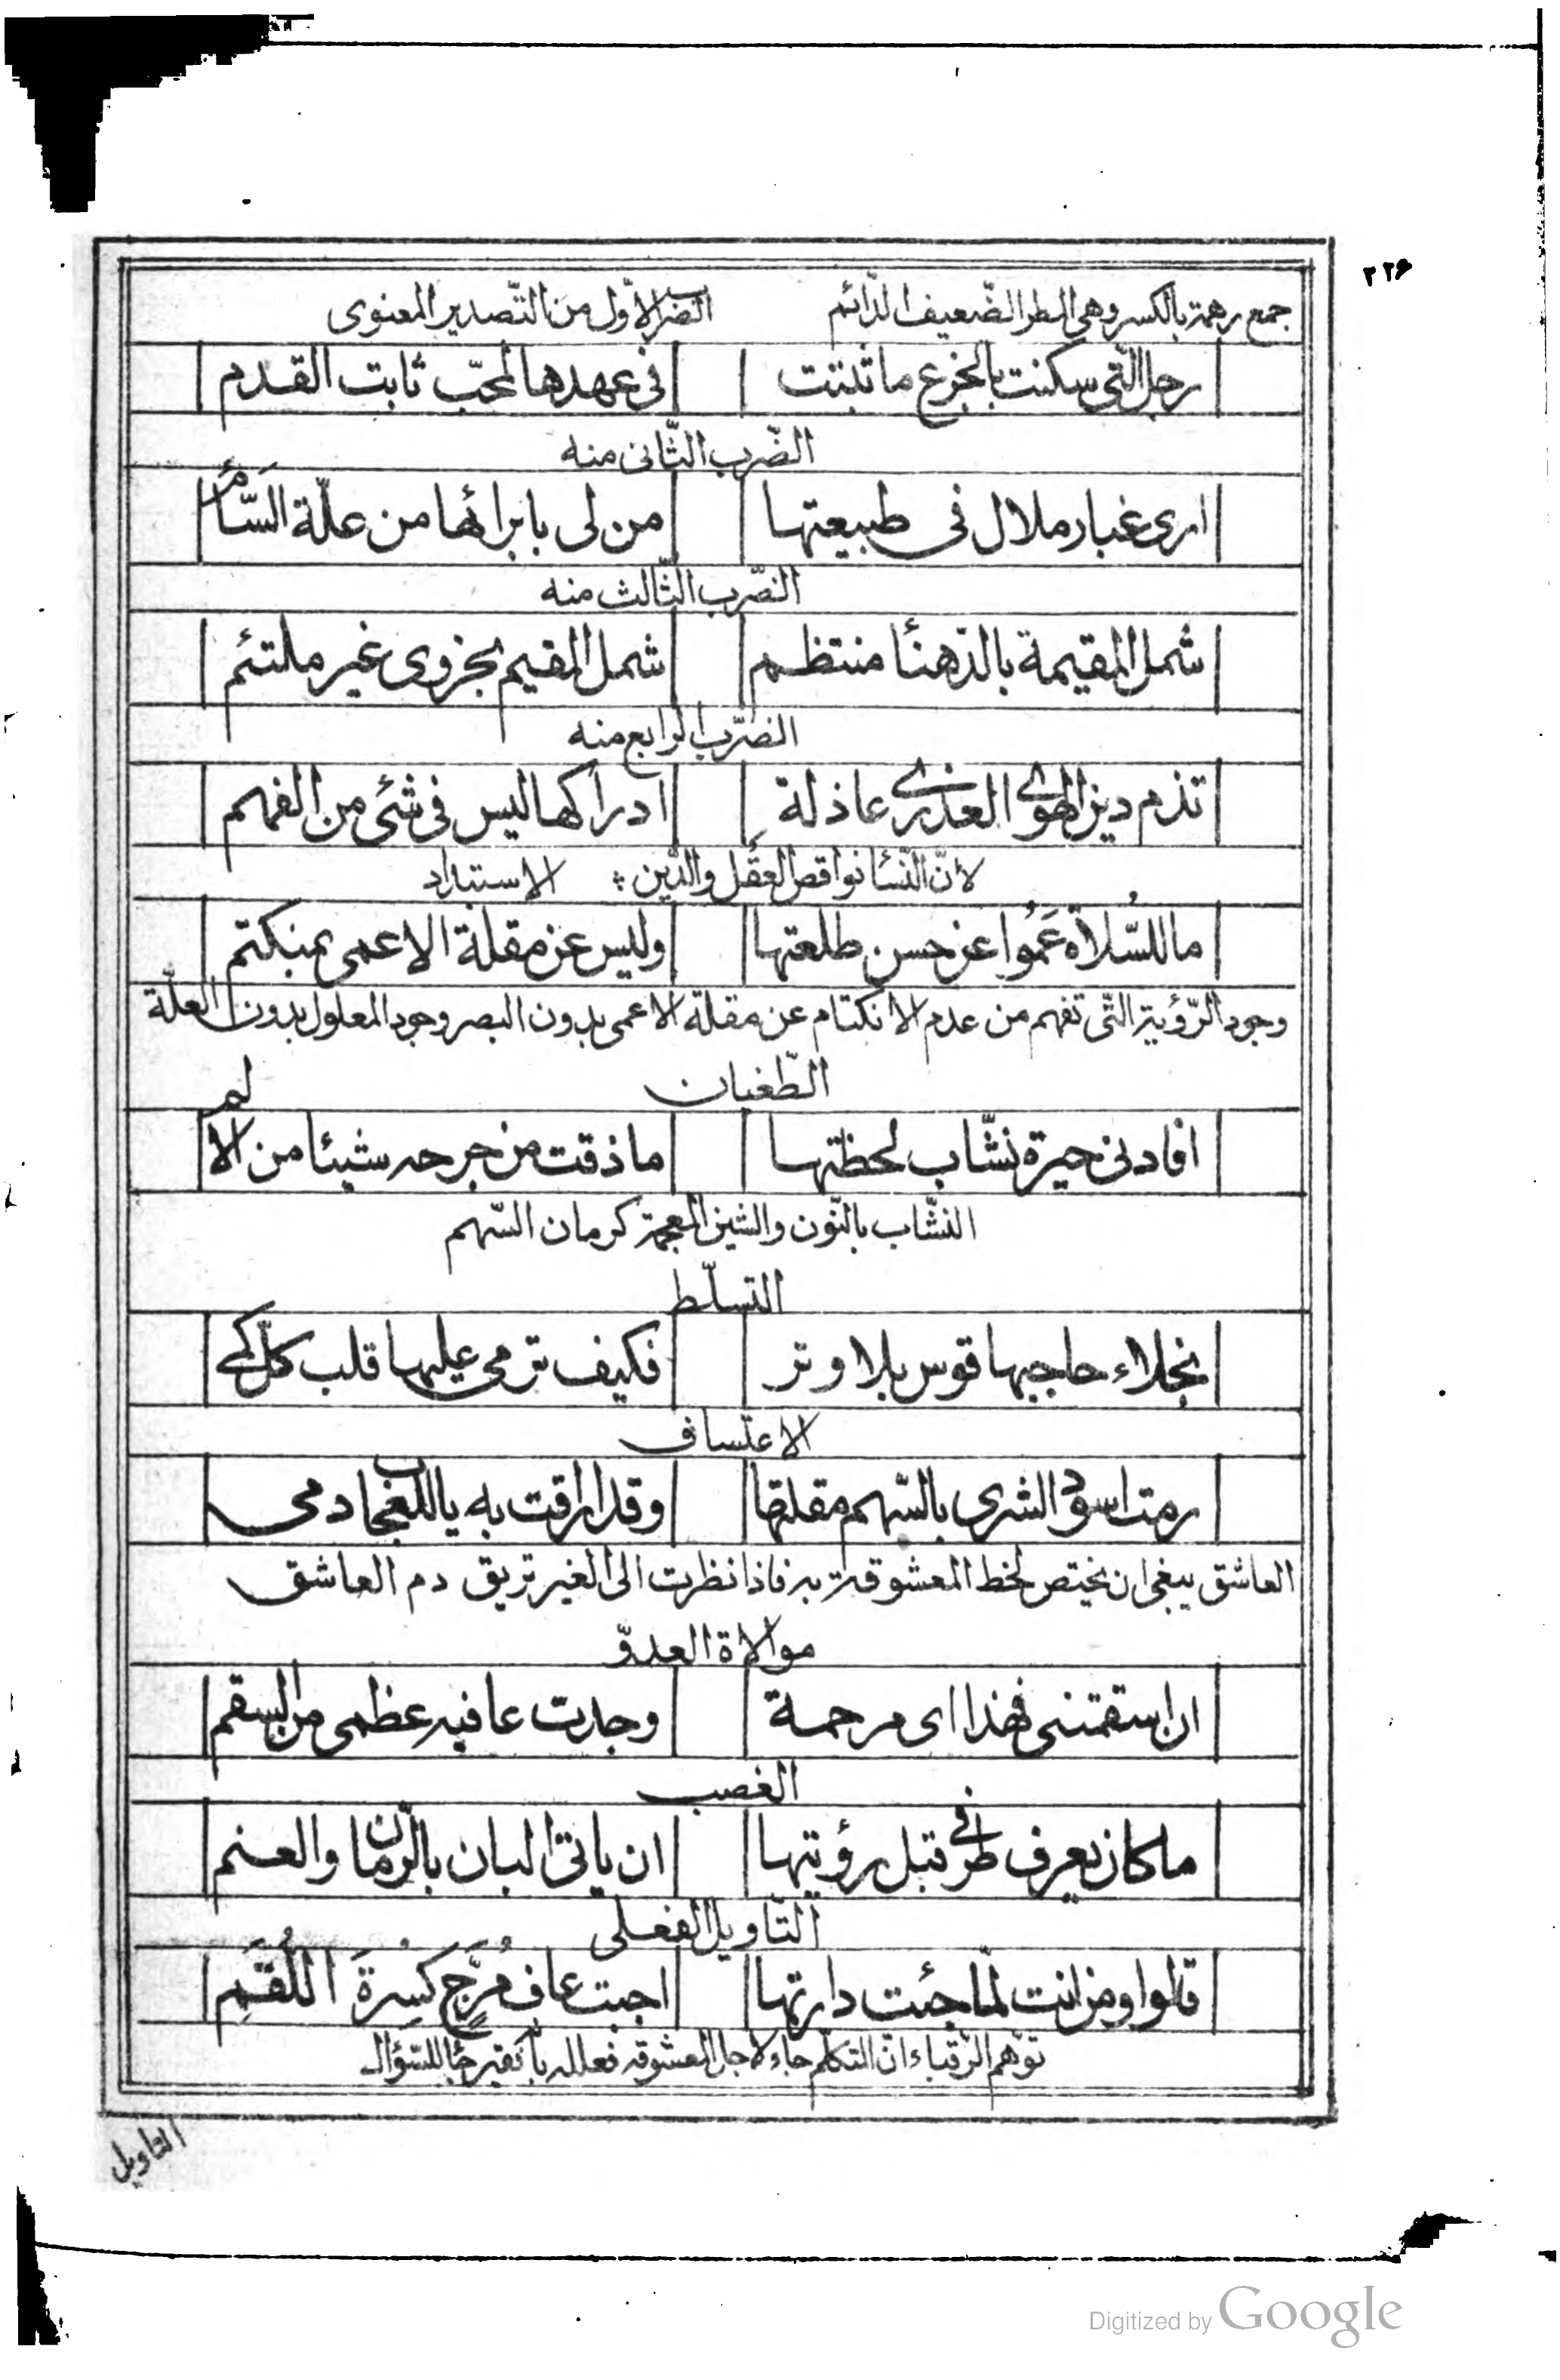 ٢٢٦
جمع رهمة بالكسر وهي المطر الضّعيف الدّائم الضرب الاوّل من التّصدير المعنوى
رجل الّتى سكنت بالجزع ما ثبتت فى عهدها لمحبّ ثابت القدم
الضّرب الثّانى منه
ارى غبار ملال فى طبيعتها من لى بابرائها من علّة السّأم
الضّرب الثّالث منه
شمل المقيمة بالدّهنأ منتظم شمل المقيم بحزوى غير ملتئم
الضّرب الرابع منه
تذم دين الهوى العذرى عاذلة ادراكها ليس فى شئ من الفهم
لانّ النّسأ نواقص العقل والدّين ؞ الاستبداد
ما للسُّلاة عَمُوا عن حسن طلعتها وليس عن مقلة الاعمى بمنكتم
وجود الرّؤية الّتى تفهم من عدم الانكتام عن مقلة الاعمى بدون البصر وجود المعلول بدون العلّة
الطّغيان
افادنى حيرة نشّاب لحظتها ما ذقت من جرحه شيئا من الالم
النشّاب بالنّون والشين المعجمة كرمان السّهم
التسلّط
نجلاء حاجبها قوس بلا وتر فكيف ترمى عليها قلب كلّ كمى
الاعتساف
رمت اسود الشرى بالسّهم مقلتها وقد اراقت به ياللعجاب دمى
العاشق يبغى ان يختص لحظ المعشوقة به فاذا نظرت الى الغير تريق دم العاشق
موالاة العدوّ
ان اسقمتنى فهذا اى مرحمة وجدت عافيه عظمى من السقم
الغصب
ما كان يعرف طرفى قبل رؤيتها ان ياتى البان بالرّمان والعنم
التّاويل الفعلى
قالوا ومن انت لمّا جئت دارتها اجبت عاف مُرَجٍّ كِسْرةَ اللُّقَمِ
توّهم الرّقباء انّ المتكلّم جاء لاجل المعشوقه فعلله بأنّه فقير جاء للسّؤال
التاويل
Digitized by Google